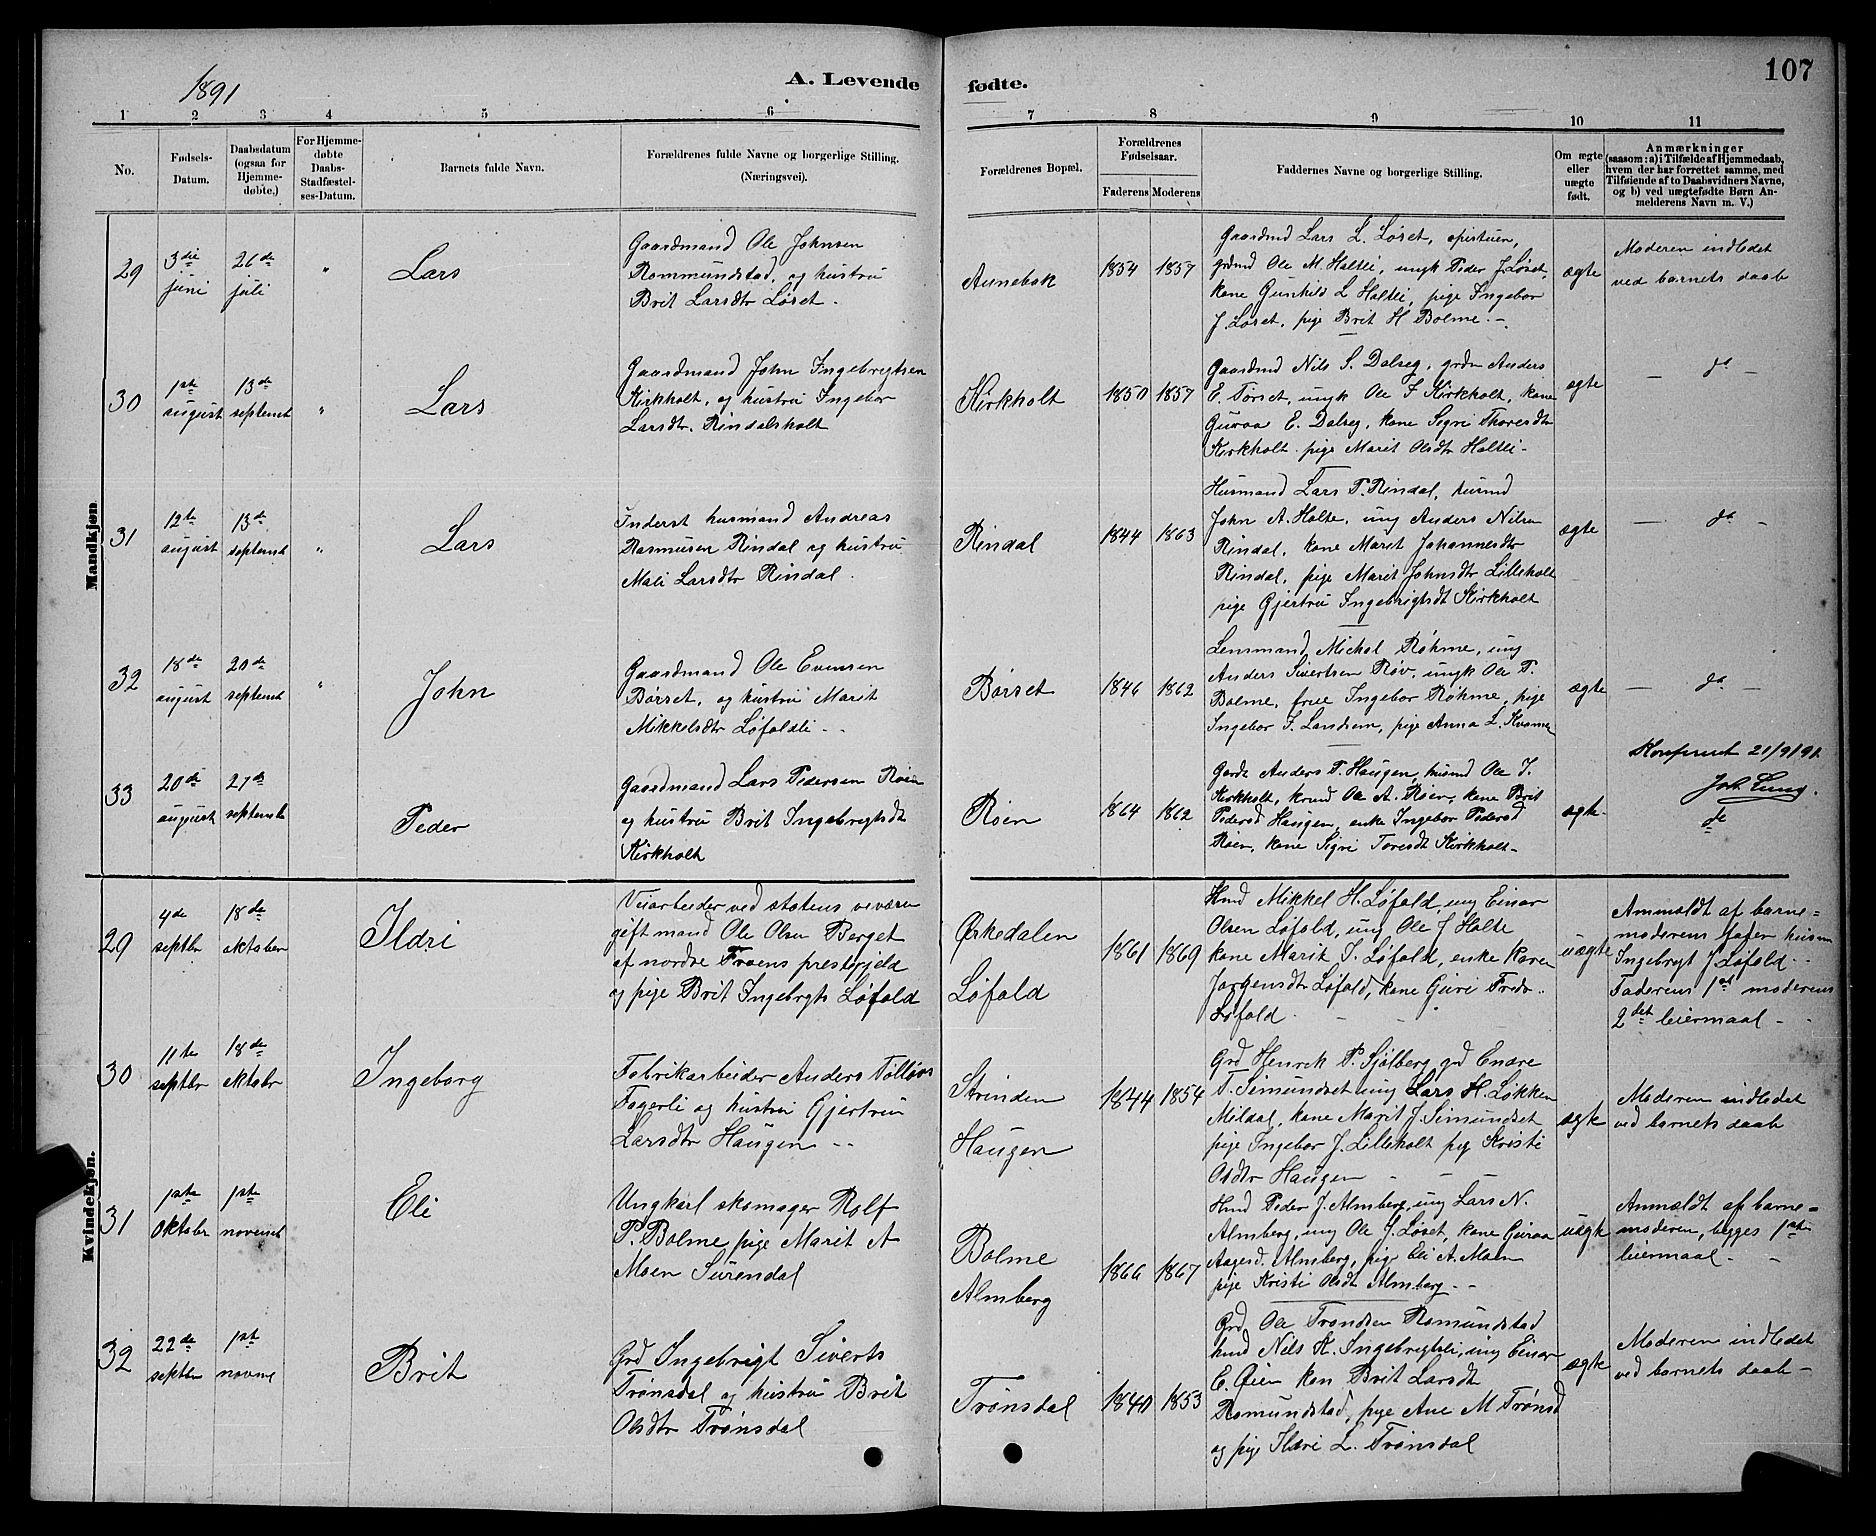 1891
A. Levende
fødte.
107
1 2 3 4 5 6 7 8 9 10 11
No.
Fødsels-
Datum.
Daabsdatum
(ogsaa for
Hjemme-
døbte,)
For Hjemme-
døbte
Daabs-
Stadfæstel-
ses-Datum.
Barnets fulde Navn.
Forældrenes fulde Navne og borgerlige Stilling.
(Næringsvei).
Forældrenes Bopæl.
Forældrenes
Fødselsaar.
Faderens Moderens
Faddernes Navne og borgerlige Stilling.
Om ægte
eller
uægte
født.
Anmærkninger
(saasom: a) i Tilfælde af Hjemmedaab,
hvem der har forrettet samme, med
Tilføiende af to Daabsvidners Navne,
og b) ved uægtefødte Børn An-
melderens Navn m. V.)
Mandkjøn
29
3die
juni
26de
juli
"
Lars
Gaardmand Ole Johnsen
Rommundstad, og hustru
Brit Larsdtr Løset.
Annebok
1854 1857
Gaardmd Lars L. Løset,
grdmd Ole M. Holtli, ungk Peder J. Løset,
kone Gunhild L Holtli, pige Ingebor
J. Løset, pige Brit H Bolme. -
ægte
Moderen indledet
ved barnets daab
30
1ste
august
13de
septembt
"
Lars
Gaardmand John Ingebrigtsen
Kirkholt, og hustru Ingebor
Larsdtr. Rindalsholt
Kirkholt
1850 1857
Gaardmd Nils S. Dalseg, grdm Anders
E. Torset, ungk Ole F Kirkholt, kone
Guroa E. Dalseg, kone Sigri Thoresdtr
Kirkholt. pige Marit Olsdtr Holtli -
ægte
- do -
31
12te
august
13de
septembt
"
Lars
Inderst husmand Andreas
Rasmusen Rindal og hustru
Mali Larsdtr Rindal.
Rindal
1844 1863
Husmand Lars P. Rindal, husmd
John A. Holte, ung Anders Nilsen
Rindal, kone Marit Johannesdtr
Rindal, pige Marit Johnsdtr Lilleholt
pige Gjertru Ingebrigtsdt Kirkholt
ægte
- do -
32
18de
august
20de
septembt
"
John
Gaardmand Ole Evensen
Børset, og hustru Marit
Mikkelsdtr Løfoldli - -
Børset
1846 1862
Lensmand Michal Røhme, ung
Anders Sivertsen Røv, ungk Ole P.
Bolme, frue Ingebor Røhme, pige
Ingebor F. Landsem, pige Anna L. Kvame
ægte
- do -
Konfereret 21/9/91.
33
20de
august
27de
septembt
Peder
Gaardmand Lars Pedersen Røen
og hustru Brit Ingebrigtsdt
Kirkholt
Røen
1864 1862
Gards Anders P. Haugen, husmd Ole I.
Kirkholt, Ole A. Røen, kone Brit
Pedersd Haugen, enke Ingebor Pedersd
Røen, kone Sigri Toresdt Kirkholt -
ægte
do
Kvindekjøn.
29
4de
septbr
18de
oktober
Ildri
Veiarbeider ved statens veivæsen
gift mand Ole Olsen Berget
af nordre Froens prestegjeld
og pige Brit Ingebrgts Løfald
Ørkedalen
Løfald
1861 1869
Hmd Mikkel H. Løfald, ung Einar
Olsen Løfold, ung Ole J Holte
kone Marit I. Løfald, enke Karen
Jørgensdtr Løfald, kone Guri Fredr..
Løfald
uægte
Anmeldt af barne=
moderens fader husm
Ingebrgt J Løfald -
Faderens 1st moderens
2det leiermaal -
30
11te
septbr
18de
oktobr
Ingeborg
Fabrikarbeider Anders Tølløvs
Fagerli og hustru Gjertru
Larsdtr Haugen - -
Strinden
Haugen
1844 1854
Grd Henrik P. Sjølberg grd Enare
T. Simundset ung Lars H. Løkken
Meldal, kone Marit J. Simundset
pige Ingebor J. Lilleholt pig Kristi
Olsdtr Haugen -
ægte
Moderen indledet
ved barnets daab
31
1ste
Oktober
1ste
november
Eli
Ungkarl skomager Rolf
P. Bolme pige Marit A
Moen Surendal
Bolme
Almberg
1866 1867
Hmd Peder J. Almberg, ung Lars N.
Almberg, ung Ole J. Løset, kone Guroa
Aagesd. Almberg, pige Eli A. Moen
pige Kristi Olsdt Almberg - -
uægte
Anmeldt af barne=
moderen, begges 1ste
leiermaal -
32
22de
septbr
1ste
novme
Brit
Grd Ingebrigt Siverts
Trønsdal og hustru Brit
Olsdtr Trønsdal
Trønsdal
1840 1853
Grd Ole Trondsen Romundstad
hmd Nils H. Ingebrigtsli, ung Einar
E. Øien kon Brit Larsdt
Romundstad, pige Ane M Trønsd
og pige Ildri L. Trønsdal
ægte
Moderen indledet
ved barnets daab -